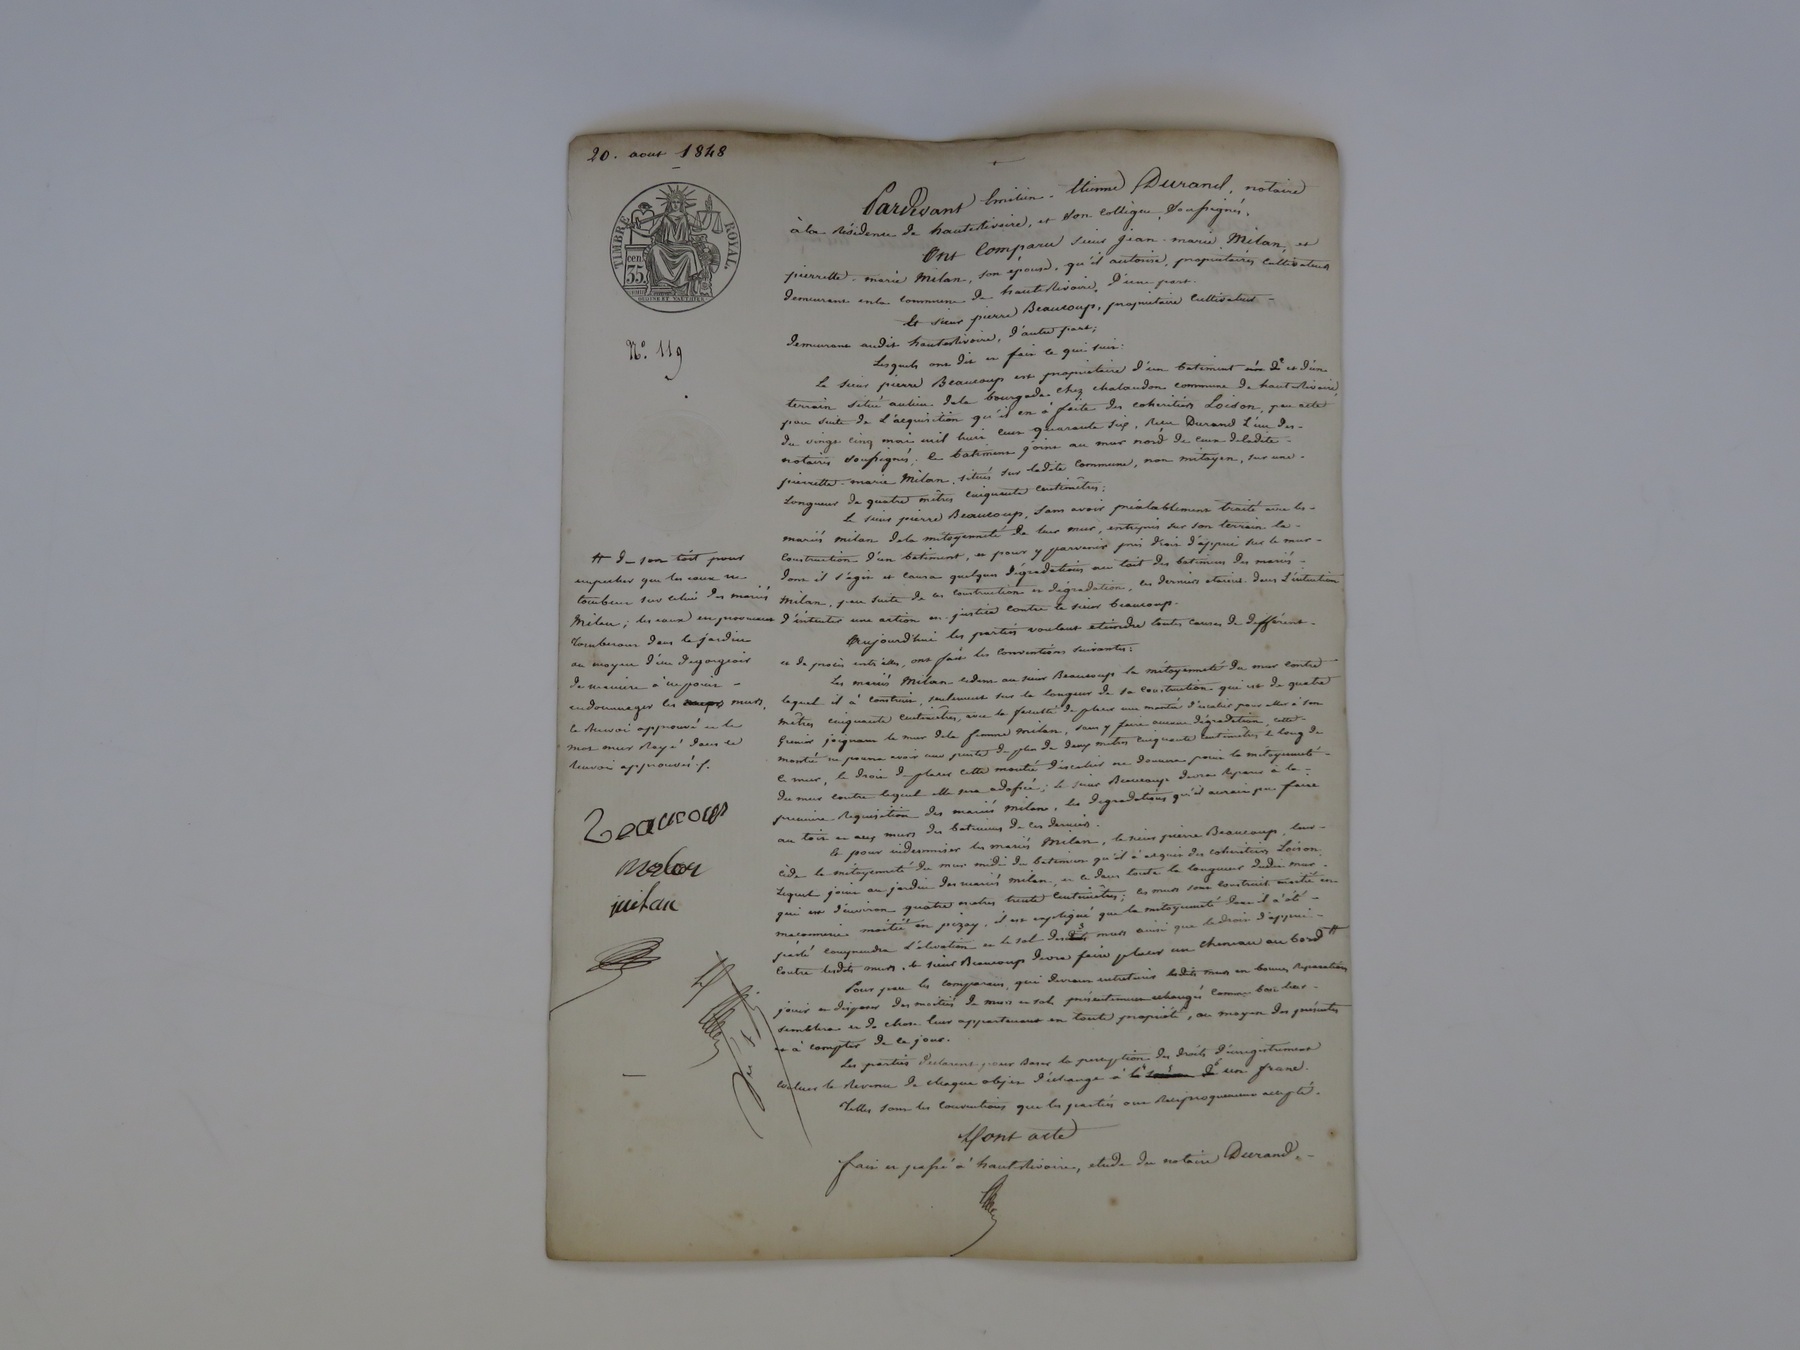 20. aout 1848
TIMBRE ROYAL.
cen
35
N.º 119
Pardevant Emilien-Etienne Durand, notaire
à la résidence de hauterivoire, et son collègue soussignés,
Ont Comparu sieur jean-marie Milan, et
pierrette-marie Milan, son épouse, qu'il autorise, propriétaires cultivateurs
demeurant en la commune de hauterivoire, d'une part.
Et sieur pierre Beaucoup, propriétaire Cultivateur -
demeurant audit hauterivoire, d'autre part;
Lesquels ont dit et fait ce qui suit:
Le sieur pierre Beaucoup est propriétaire d'un batiment et d'un
terrain situé au lieu dela bourgade chez chalandon commune de hauterivoire,
pour suite de l'acquisition qu'il en à faite des cohéritiers Loison, par acte
du vingt cinq mai mil huit cent quarante six, reçu Durand l'un des -
notaires soussignés; le batiment joint au mur nord de ceux deladite -
pierrette-marie Milan, situés sur ladite commune, non mitoyen, sur une -
longueur de quatre mètres cinquante centimètres;
Le sieur pierre Beaucoup, sans avoir préalablement traité avec les -
mariés milan dela mitoyenneté de leur mur, entreprit sur son terrain la -
construction d'un batiment, et pour y parvenir prit droit d'appui sur le mur -
dont il s'agit et causa quelques dégradations au toit des batimens des mariés -
Milan, par suite de ces construction et dégradation, ces derniers etaient dans l'intention
d'intenter une action en justice contre le sieur beaucoup.
Aujourd'hui les parties voulant eteindre toutes causes de différent -
et de procès entr'elles, ont fait les conventions suivantes:
Les mariés Milan cèdent au sieur Beaucoup la mitoyenneté du mur contre
lequel il à construit, seulement sur la longueur de sa construction qui est de quatre
mètres cinquante centimètres, avec la faculté de placer une montée d'escalier pour aller à son
Grenier joignant le mur dela femme Milan, sans y faire aucune dégradation, cette -
montée ne pourra avoir une pente de plus de deux mètres cinquante centimètres le long de
ce mur, le droit de placer cette montée d'escalier ne donnera point la mitoyenneté -
du mur contre lequel elle sera adossée; le sieur Beaucoup devra réparer à la -
première réquisition des mariés Milan, les dégradations qu'il aurait pu faire
au toit et aux murs des batimens de ces derniers.
Et pour indemniser les mariés Milan, le sieur pierre Beaucoup, leur -
cède la mitoyenneté du mur midi du batiment qu'il à acquis des cohéritiers Loison
lequel joint au jardin des mariés milan, et ce dans toute la longueur dudit mur -
qui est d'environ quatre mètres trente centimètres; les murs sont construits moitié en -
maçonnerie moitié en pizay, il est expliqué que la mitoyenneté dont il à été -
parlé comprendra l'élévation et le sol desdits murs ainsi que le droit d'appui -
contre lesdits murs. le sieur Beaucoup devra faire placer un cheneau au bord #
Pour par les comparans, qui devront entretenir lesdits murs en bonnes réparations
jouir et disposer des moitiés de murs et sol présentement échangés comme bon leur -
semblera et de chose leur appartenant en toute propriété, au moyen des présentes
et à compter de ce jour.
Les parties déclarent pour baser la perception des droits d'enregistrement
évaluer le revenu de chaque objet d'échange à un franc.
Telles sont les conventions que les parties ont réciproquement accepté.
Dont acte
fait et passé à hauterivoire, etude du notaire Durand. -
# de son toit pour
empêcher que les eaux ne
tombent sur celui des mariés
Milan; les eaux en provenant
tomberont dans le jardin
au moyen d'un dégorgeoir
de manière à ne point -
endommager les murs,
le renvoi approuvé et le
mot mur rayé dans le
renvoi approuvés./.
Beaucoup
milan